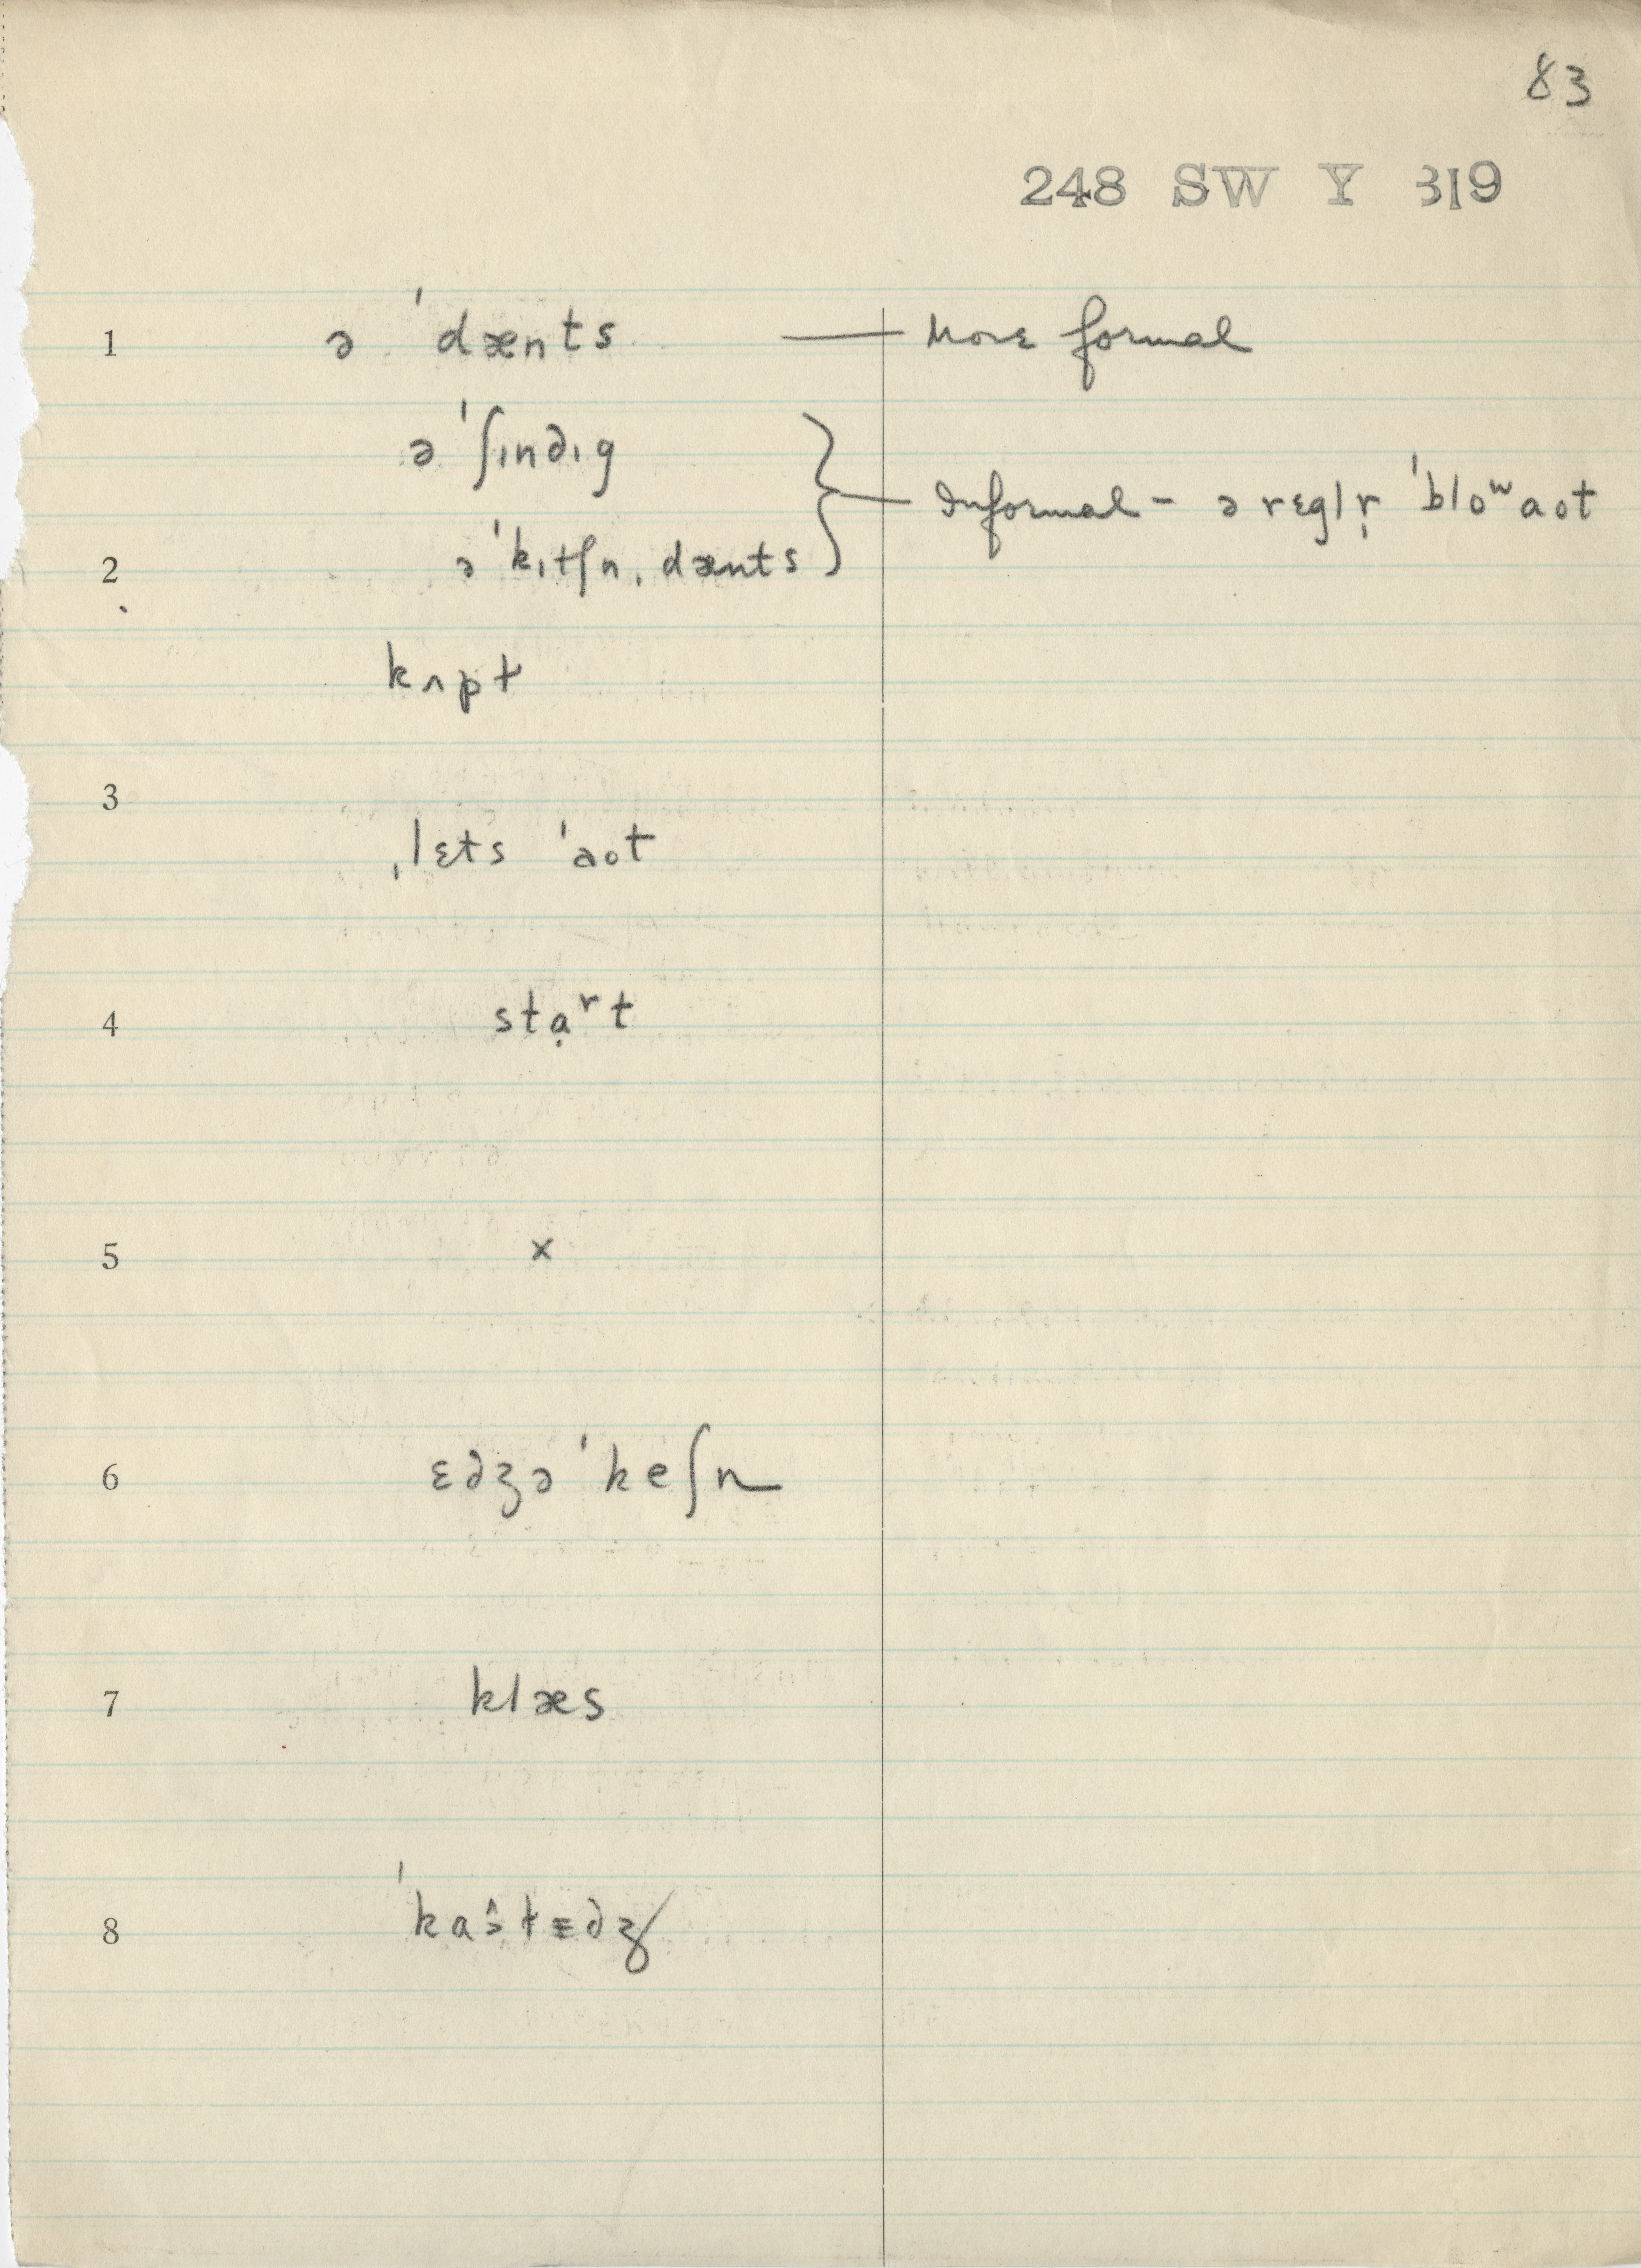 83
248 SW Y 319
1 ə ˈdænts — More formal
ə ˈʃɪn∂ɪg
Informal - ə rɛglr̩ ˈbloʷaʊt
2 ə ˈkɪtʃn̩ dænts
kʌpt
3
ˌlɛts ˈaʊt
4 stạʳt
5 x
6 ɛ∂ʒəˈkeʃn
7 klæs
8